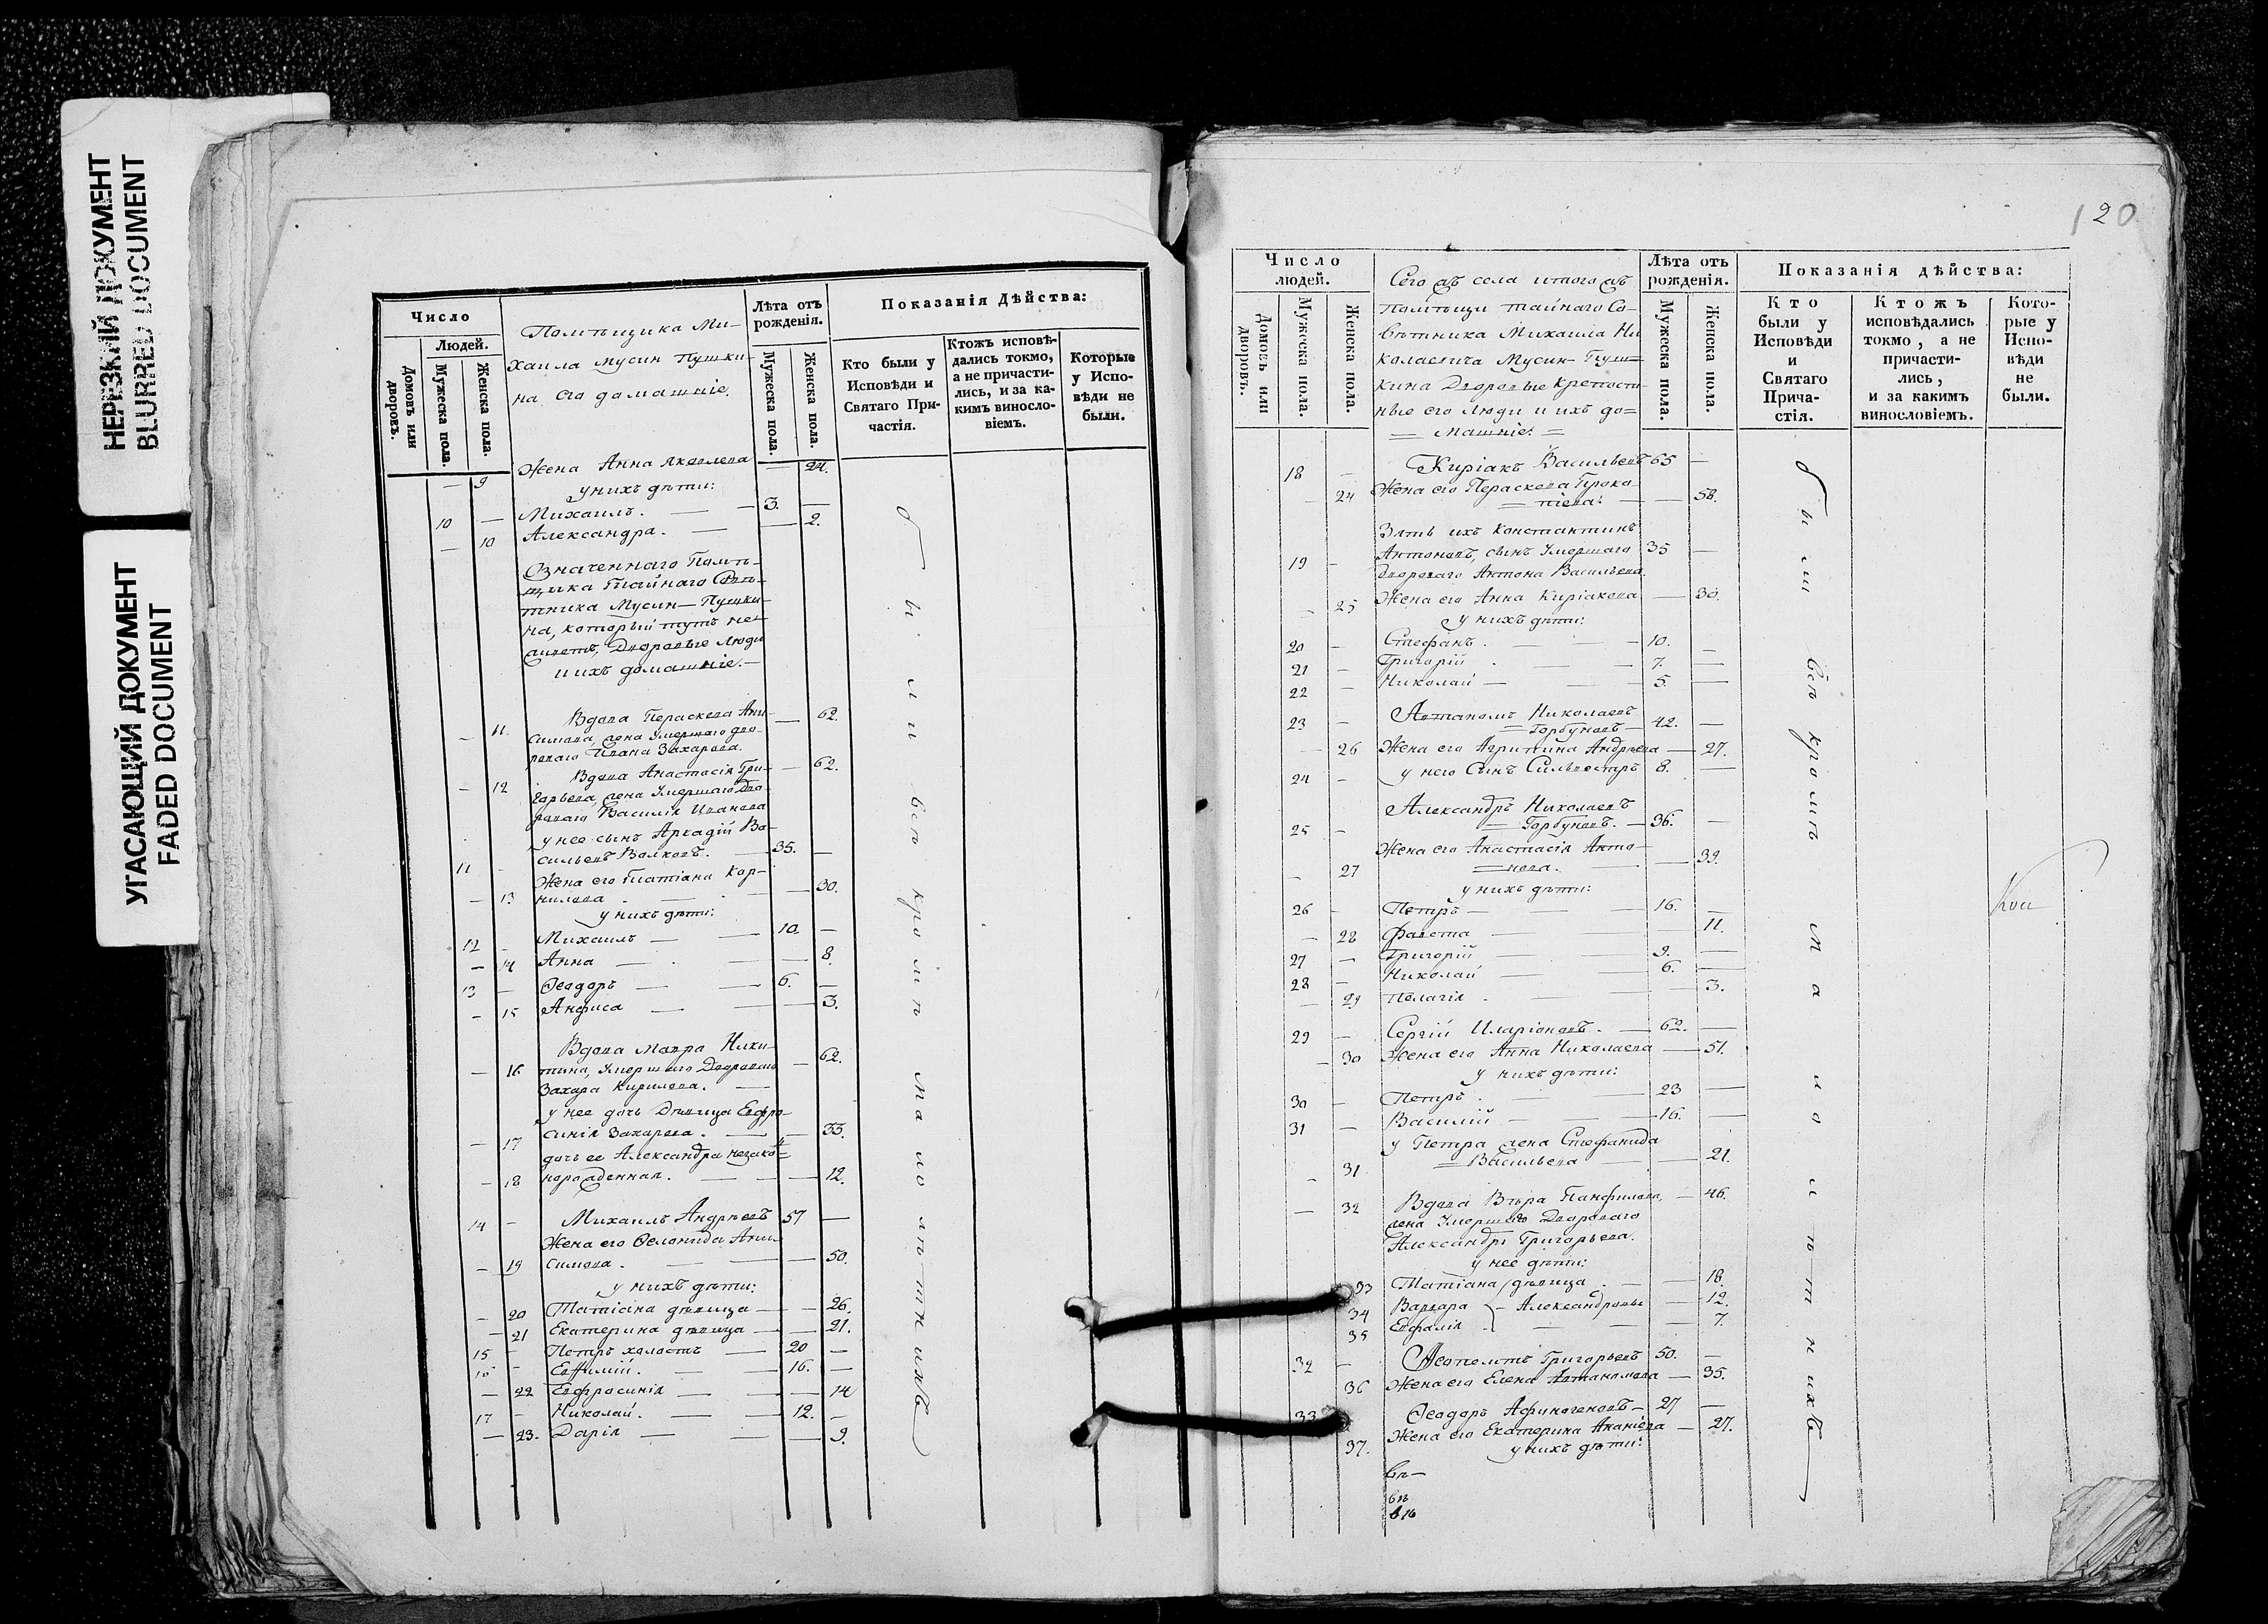 НЕРЕЗКИЙ ДОКУМЕНТ
BLURRED DOCUMENT
УГАСАЮЩИЙ ДОКУМЕНТ
FADED DOCUMENT
Число
Людей.
Домовъ или дворовъ.
Мужеска пола.
Женска пола.
Помѣщика Ми-
хаила Мусин Пушки-
на его домашніе.
Лѣта отъ рожденія.
Мужеска пола.
Женска пола.
Показанія Дѣйства:
Кто были у
Исповѣди и
Святаго При-
частія.
Ктожъ исповѣ-
дались токмо,
а не причасти-
лись, и за ка-
кимъ виносло-
віемъ.
Которые
у Испо-
вѣди не
были.
— 9 Жена Анна Яковлева — 24.
у нихъ дѣти:
10 — Михаилъ. — — 3. —
— 10 Александра. — — 2.
Означеннаго Помѣ-
щика Тайнаго Совѣ-
тника Мусин-Пушки-
на, который тутъ не
живетъ, Дворовые люди
и ихъ домашніе. —
— 11. Вдова Параскева Ани- — 62.
симова, жена Умершаго дво-
роваго Ивана Захарова.
— 12 Вдова Анастасія Гри- — 62.
горьева, жена Умершаго Дво-
роваго Василія Иванова
у нее сынъ Аркадій Ва-
11 — сильевъ Волковъ. — 35. —
Жена его Татіана Кор-
— 13 нилова — — 30.
у нихъ дѣти:
12 — Михаилъ — — 10. —
— 14 Анна — — — 8.
13 — Ѳеодоръ — — 6. —
— 15 Анфиса — — — 3.
Вдова Мавра Ники-
— 16 тина, Умершаго Двороваго — 62.
Захара Кирилова. —
у нее дочь Дѣвица Евфро-
— 17 синія Захарова. — — 33.
дочь ее Александра незако-
— 18 норожденная. — — — 12.
14 — Михаилъ Андреевъ 57 —
Жена его Ѳеонида Ани-
— 19 симова. — — — 50.
у нихъ дѣти:
— 20 Татіана дѣвица — — 26.
— 21 Екатерина дѣвица — — 21.
15 — Петръ холостъ — 20 —
16 — Евѳимій. — — 16. —
— 22 Евфросинія — — — 14
17 — Николай. — — 12. —
— 23. Дарія — — — 9.
были вси кромѣ малолѣтнихъ
120
Число
людей.
Домовъ или дворовъ.
Мужеска пола.
Женска пола.
Сегожъ села итогожъ
помѣщи тайнаго Со-
вѣтника Михаила Ни
колаевича Мусин-Пуш-
кина Дворовые крепост-
ные его люди и ихъ до=
= машніе. =
Лѣта отъ
рожденія.
Мужеска пола.
Женска пола.
Показанія дѣйства:
Кто
были у
Исповѣди
и
Святаго
Прича-
стія.
Ктожъ
исповѣдались
токмо, а не
причасти-
лись,
и за какимъ
винословіемъ.
Кото-
рые у
Испо-
вѣди
не
были.
18 — Киріакъ Васильевъ 65 —
— 24 Жена его Параскева Проко-
= піева: — — 58.
Зять ихъ Константинъ
19 — Антоновъ, сынъ Умершаго 35 —
Двороваго Антона Васильева.
— 25 Жена его Анна Киріакова — 30.
у нихъ дѣти:
20 — Стефанъ. — — 10. —
21 — Григорій — — 7. —
22 — Николай — — 5. —
23 — Автаномъ Николаевъ
= Горбуновъ — 42. —
— 26 Жена его Агрипина Андреева — 27.
24 — у него Сынъ Сильвестръ 8. —
Александръ Николаевъ
25 — = Горбуновъ. — 36. —
Жена его Анастасія Анто-
— 27 = нова. — — 39.
у нихъ дѣти:
26 — Петръ — — 16. —
— 28 Фавста — — 11.
27 — Григорій — — 9. —
28 — Николай — — 6. —
— 29 Пелагія — — 3.
29 — Сергій Иларіоновъ. — 62. —
— 30 Жена его Анна Николаева — 51.
у нихъ дѣти:
30 — Петръ. — — 23 —
31 — Василій — — 16. —
у Петра жена Стефанида
— 31 = Васильева — — 21.
— 32 Вдова Вѣра Панфилова, — 46.
жена Умершаго Двороваго
Александра Григорьева.
у нее дѣти:
33 Татіана дѣвица. — — 18.
34 Варвара — Александровы — 12.
35 Евфалія — — — 7.
32 — Григорьевъ 50. —
36 Жена его Елена Автаномова — 35.
33 Ѳеодоръ Афиногеновъ — 27 —
37. Жена его Екатерина Ананіева — 27.
у нихъ дѣти:
были вси кромѣ малолѣтнихъ